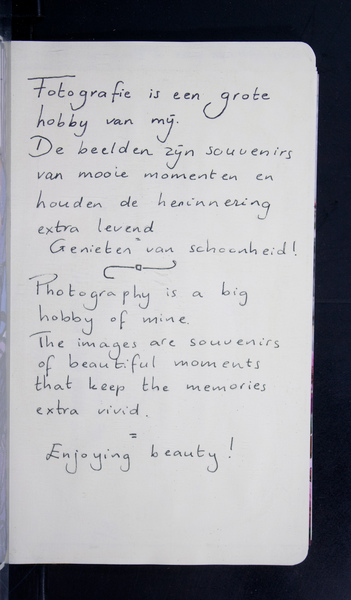 Fotografie is een grote
hobby van mij.
De beelden zijn souvenirs
van mooie momenten en
houden de herinnering
extra levend
= Genieten van schoonheid!
Photography is a big
hobby of mine.
The images are souvenirs
of beautiful moments
that keep the memories
extra vivid.
=
Enjoying beauty!